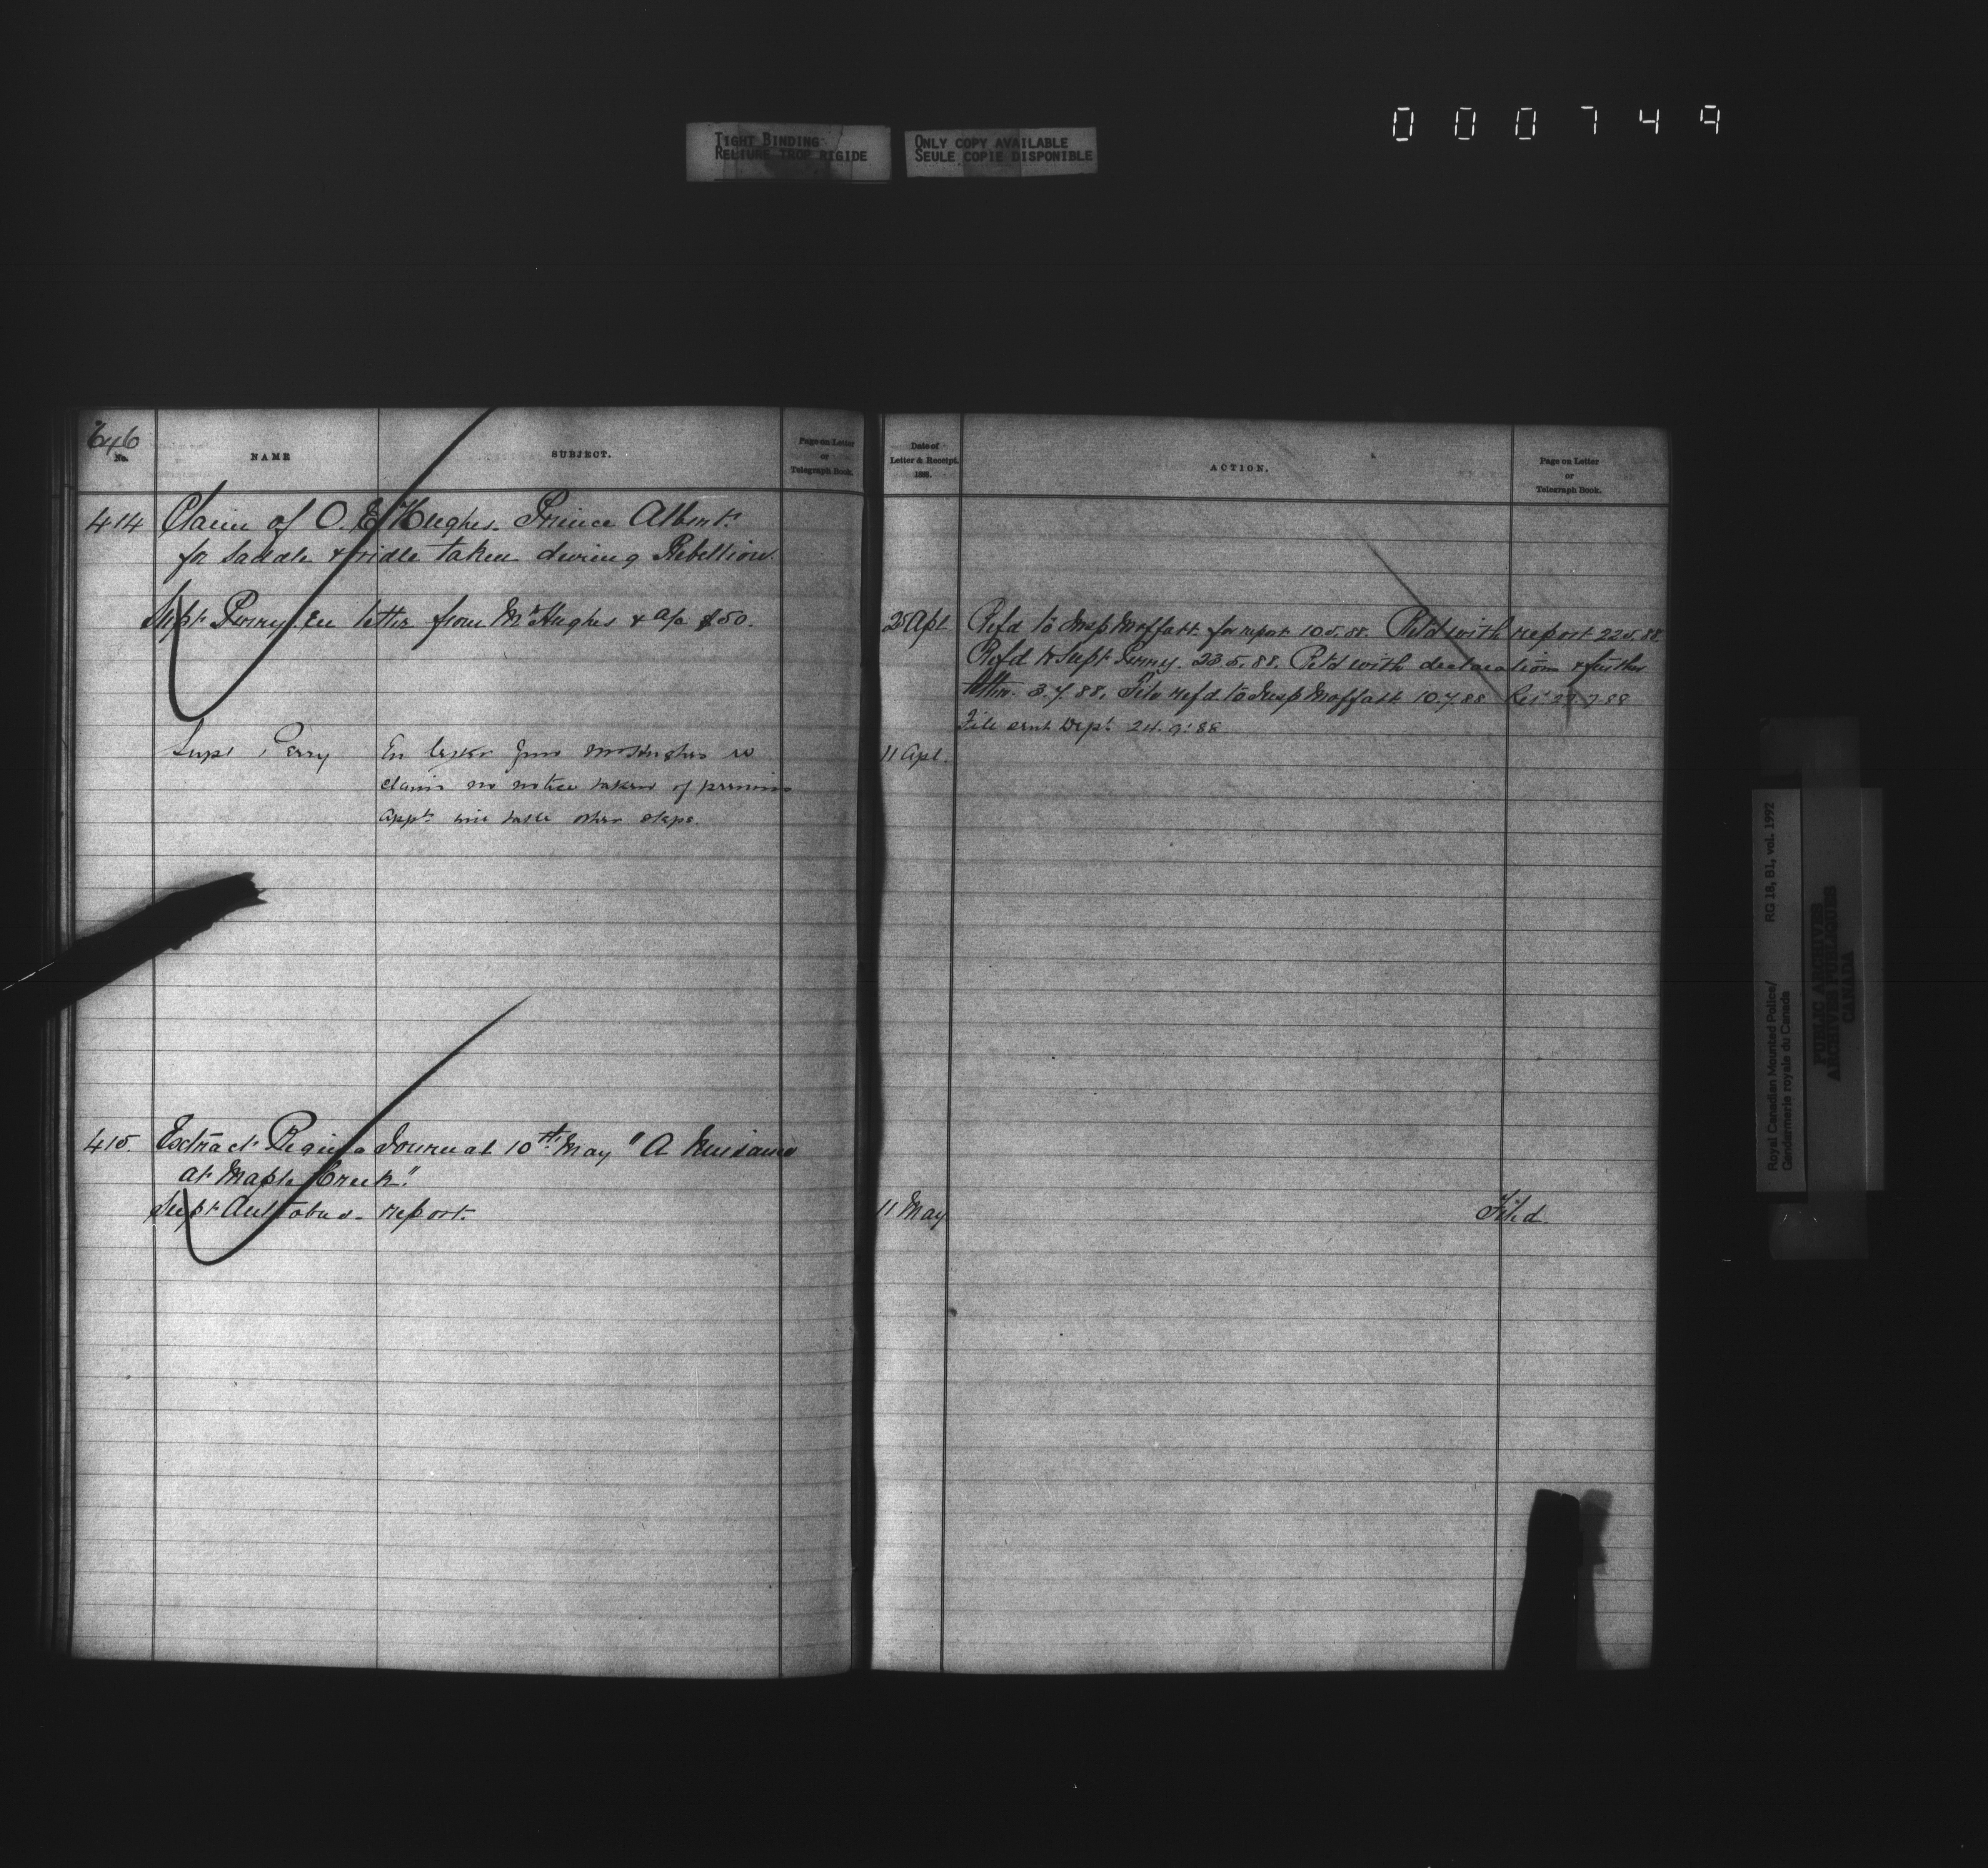 000749
TIGHT BINDING
RELIURE TROP RIGIDE
ONLY COPY AVAILABLE
SEULE COPIE DISPONIBLE
646
No.
NAME
SUBJECT.
Page on Letter
or
Telegraph Book.
Date of
Letter & Receipt.
188
ACTION.
Page on Letter
or
Telegraph Book.
414 Claim of O. E. Hughes. Prince Albert.
for Saddle & bridle taken during Rebellion.
Supt Perry. En letter from Mr Hughes & a/c $50.
25 Apl Refd to Insp Moffatt for report 10.5.88. Retd with report 22.5.88.
Refd to Supt Perry. 23.5.88. Retd with declaration & further
letter. 3.7.88. File refd to Insp Moffatt 10.7.88 Ret 27.7.88
File sent Dept 24.9.88
Supt Perry En letter from Mr Hughes re
11 Apl.
claim no notice taken of previous
appn will take other steps.
415. Extract Regina Journal 10th May "A Nuisance
at Maple Creek."
Supt Antrobus - report.
11 May
Filed.
Royal Canadian Mounted Police/
Gendarmerie royale du Canada
RG 18, B1, vol. 1992
PUBLIC ARCHIVES
ARCHIVES PUBLIQUES
CANADA